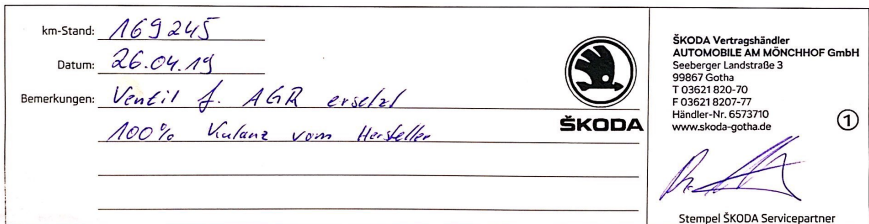 km-Stand: 169245
Datum: 26.04.19
Bemerkungen: Ventil f. AGR ersetzt
100% Kulanz vom Hersteller
ŠKODA
ŠKODA Vertragshändler
AUTOMOBILE AM MÖNCHHOF GmbH
Seeberger Landstraße 3
99867 Gotha
T 03621 820-70
F 03621 8207-77
Händler-Nr. 6573710
www.skoda-gotha.de
1
Stempel ŠKODA Servicepartner